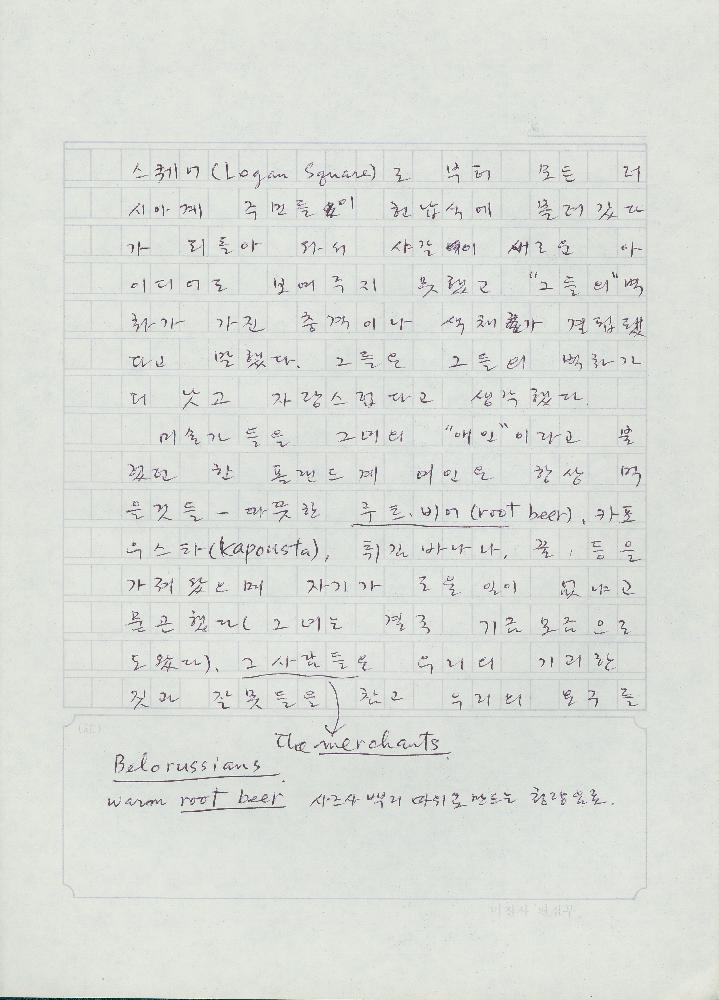 스퀘어 (Logan Square) 로 부터 모든 러
시아계 주민들이 헌납식에 몰려갔다
가 되돌아 와서 샤갈이 새로운 아
이디어도 보여주지 못했고 "그들의" 벽
화가 가진 충격이나 색채가 결핍됐
다고 말했다. 그들은 그들의 벽화가
더 낫고 자랑스럽다고 생각했다.
미술가들을 그녀의 "애인"이라고 불
렀던 한 폴랜드계 여인은 항상 먹
을것들 - 따뜻한 루트.비어 (root beer), 카포
우스타 (kapousta), 튀긴 바나나, 꿀, 등을
가져왔으며 자기가 도울 일이 없냐고
묻곤했다 (그녀는 결국 기금모금으로
도왔다). 그 사람들은 우리의 기괴한
짓과 잘못들을 참고 우리의 요구를
The merchants.
Belorussians.
warm root beer 사르사 뿌리 따위로 만드는 청량음료.